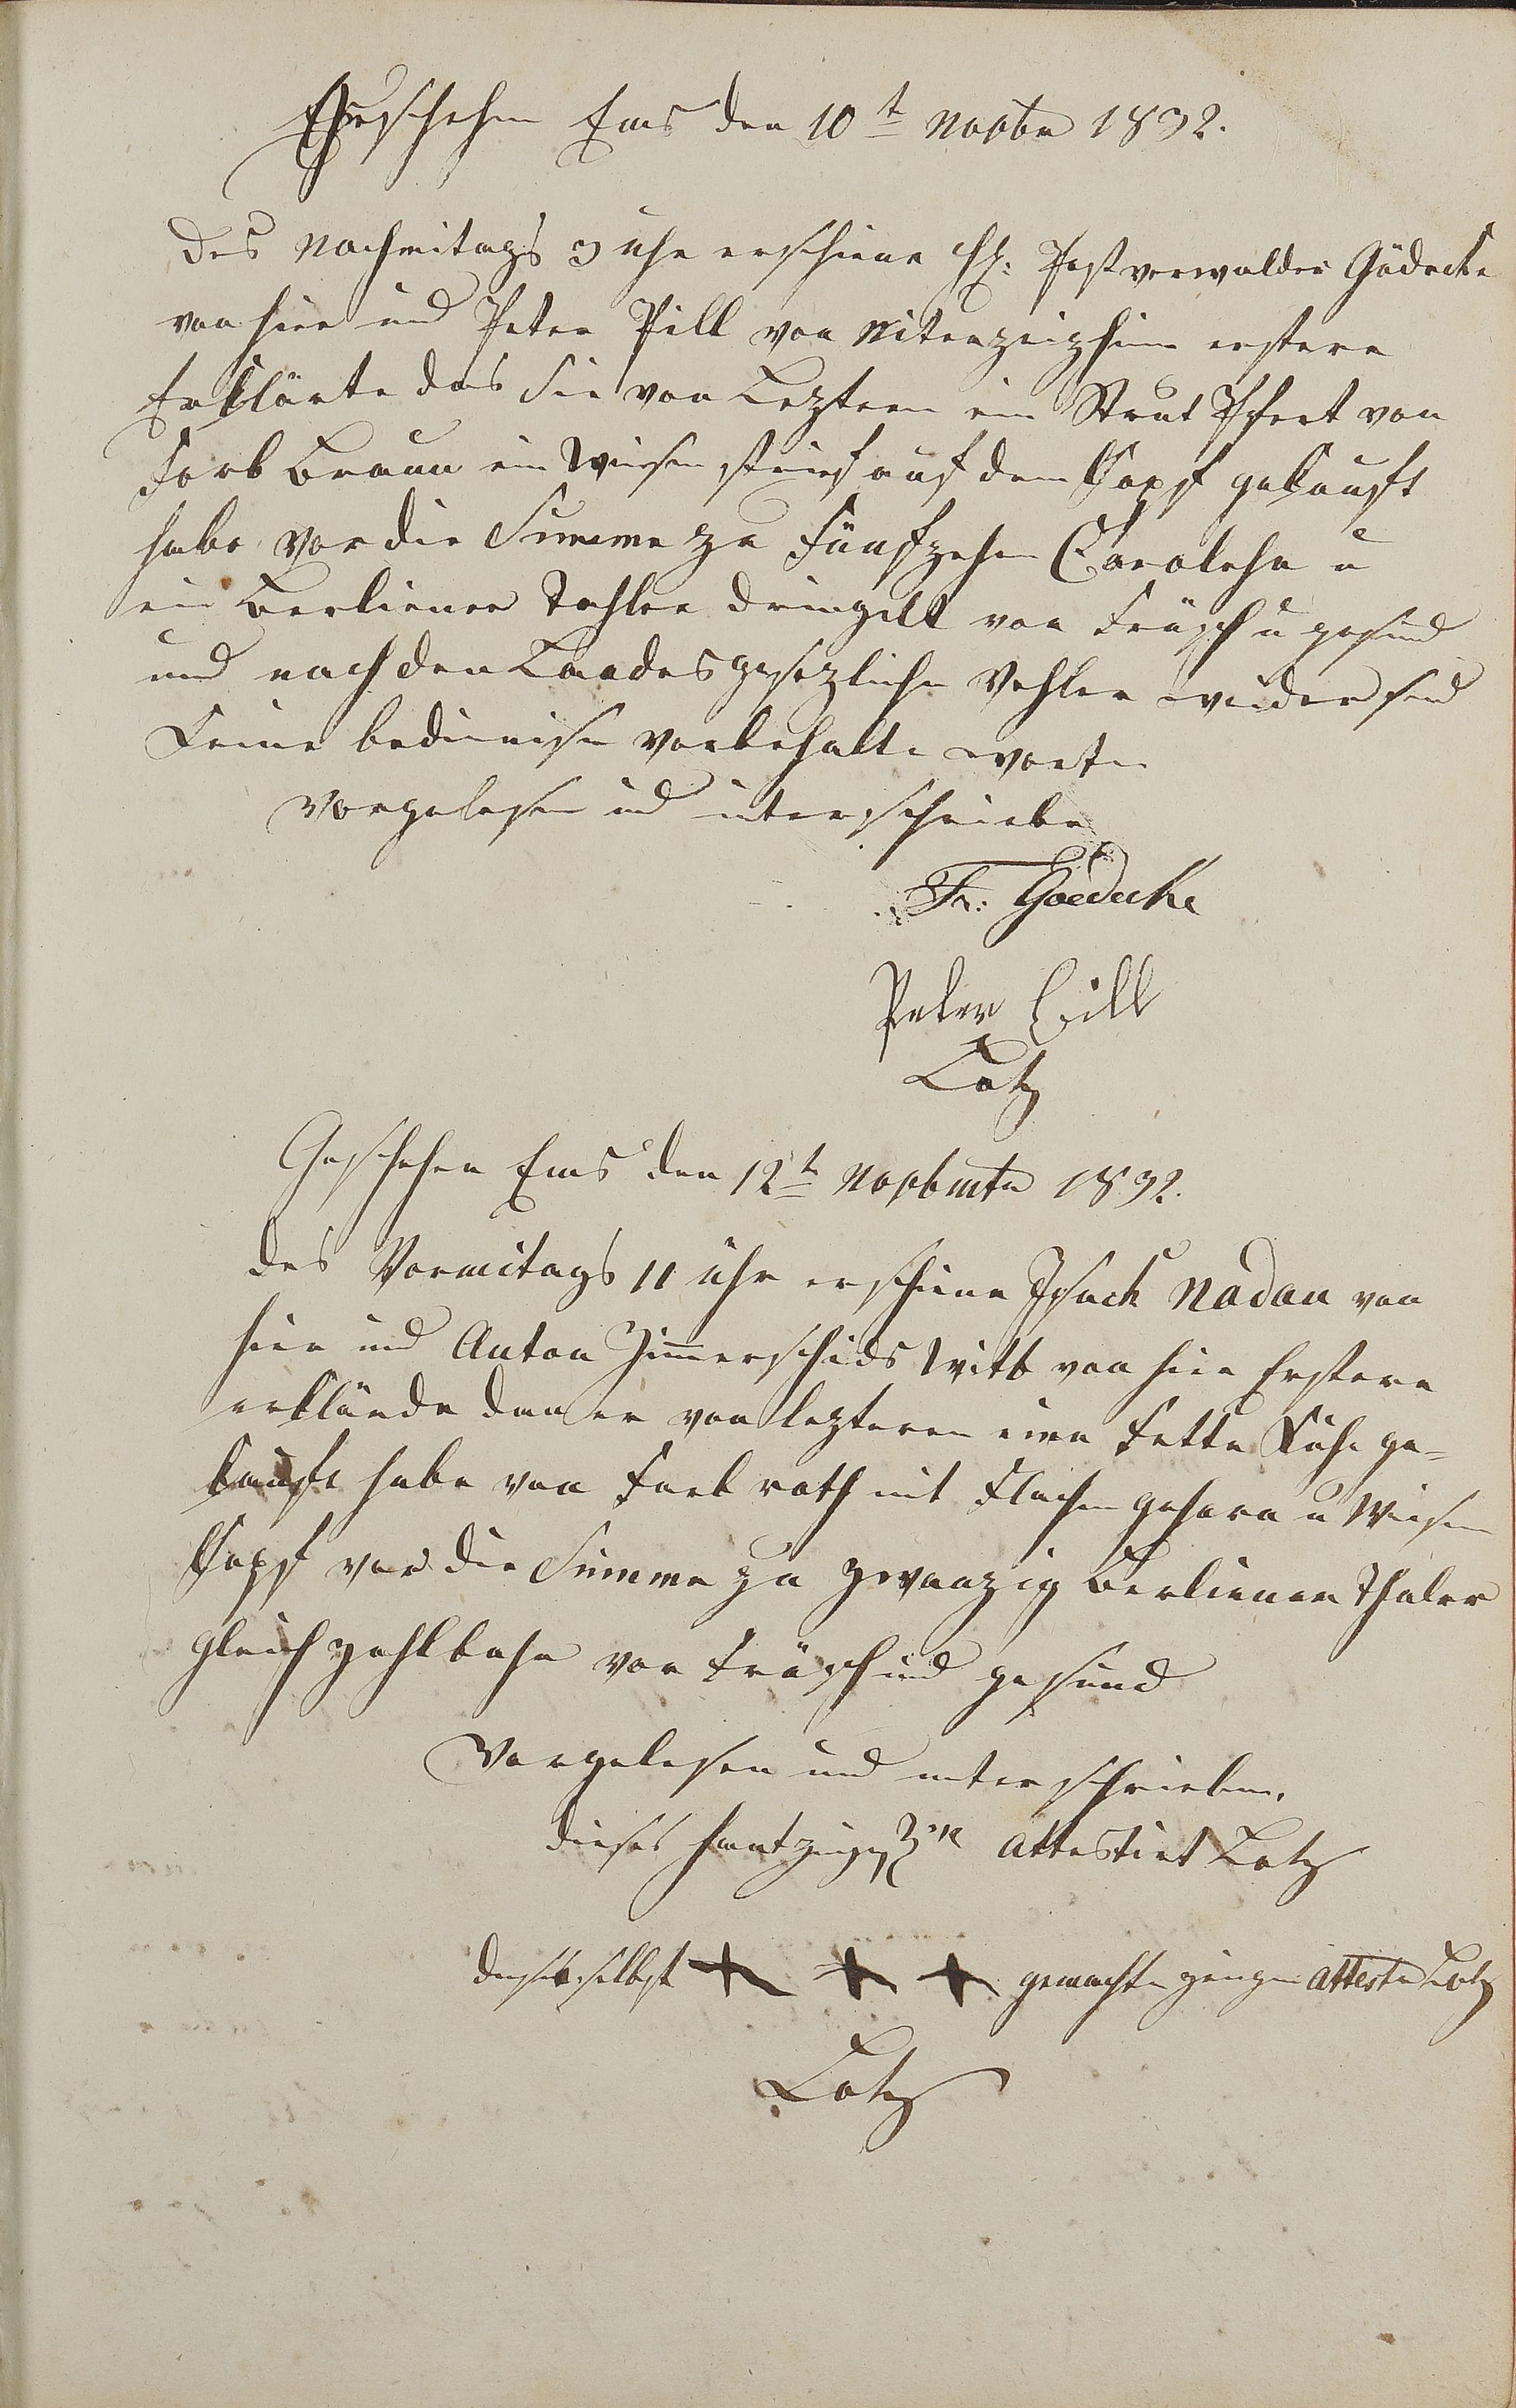 Geschehen Ems den 10t Novbr 1832.
Des Nachmitags 3 uhr erschiene H: Postverwalder Gödecke
von hier und Peter Pill von erstere
Erklärte das Sie von Lezteren ein Strut Pfert von
Farb Braun ein Wiesen streif auf dem Kopf gekauft
habe vor die Summe zu Fünfzehn Carolehn u
ein Berliener Tahler dringelt vor Frisch u gesund
und nach den Landesgesezliche Vehler weider sind
Keine bedinnise vorbehalte worten
Vorgelesen und unterschriebe
Fr: Goedecke
Peter Bill
Lotz
Geschehen Ems den 12t Novbmtr 1832.
des Vormitags 11 uhr erschiene Isack Nadan von
hier und Anton Zimmerschids Witb von hier Erstere
erklärde das er von lezteren eine Fette Kuhe ge-
kauft habe von Farb roth mit Flachen gehorn u Wiesen
Kopf vor die Summe zu zwanzig Berliener Thaler
gleich zahlbahr vor Früsch und gesund
Vorgelesen und unterschrieben.
dieses hantzeigen attestirt Lotz
selbst + + + gemachte zeugen atteste Lotz
Lotz